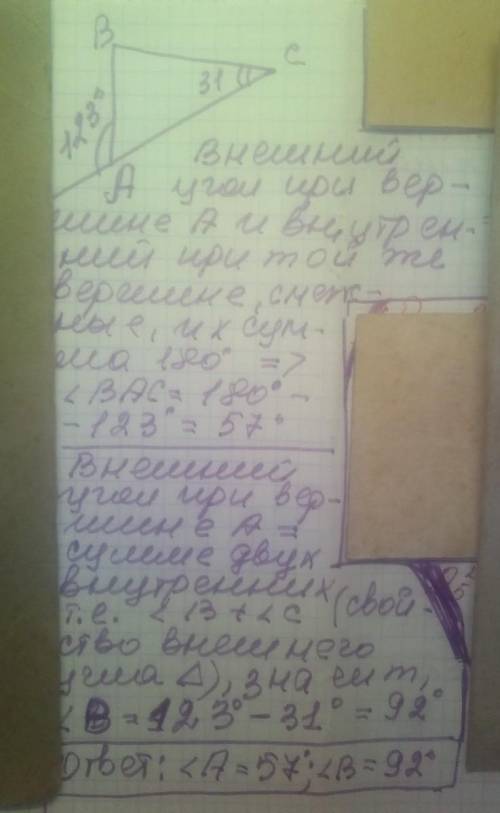 B
C
31
123°
A
Внешний
угол при вер-
шине A и внутрен-
ний при той же
вершине, смеж-
ные, их сум-
ма 180° =>
∠BAC = 180° -
- 123° = 57°
Внешний
угол при вер-
шине A =
сумме двух
внутренних
т.е. ∠B + ∠C (свой-
ство внешнего
угла Δ), значит,
∠B = 123° - 31° = 92°
Ответ: ∠A = 57°; ∠B = 92°